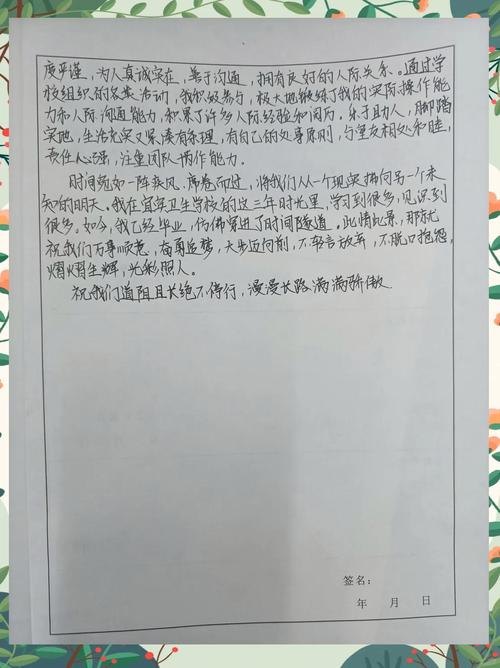 度严谨，为人真诚实在，善于沟通，拥有良好的人际关系。通过学
校组织的各类活动，我积极参与，极大地锻练了我的实际操作能
力和人际沟通能力，积累了许多人际经验和阅历。乐于助人，脚踏
实地，生活充实又紧凑有条理，有自己的处事原则，与室友相处和睦，
责任心强，注重团队协作能力。
时间宛如一阵疾风，席卷而过，将我们从一个现实拂向另一个未
知的明天。我在宜宾卫生学校的这三年时光里，学习到很多，见识到
很多。如今，我已经毕业，仿佛穿进了时间隧道。此情此景，那就
祝我们万事顺意，奋勇追梦，大步迈向前，不轻言放弃，不脱口抱怨，
熠熠生辉，光彩照人。
祝我们道阻且长绝不停行，漫漫长路满满骄傲
签名：
年 月 日